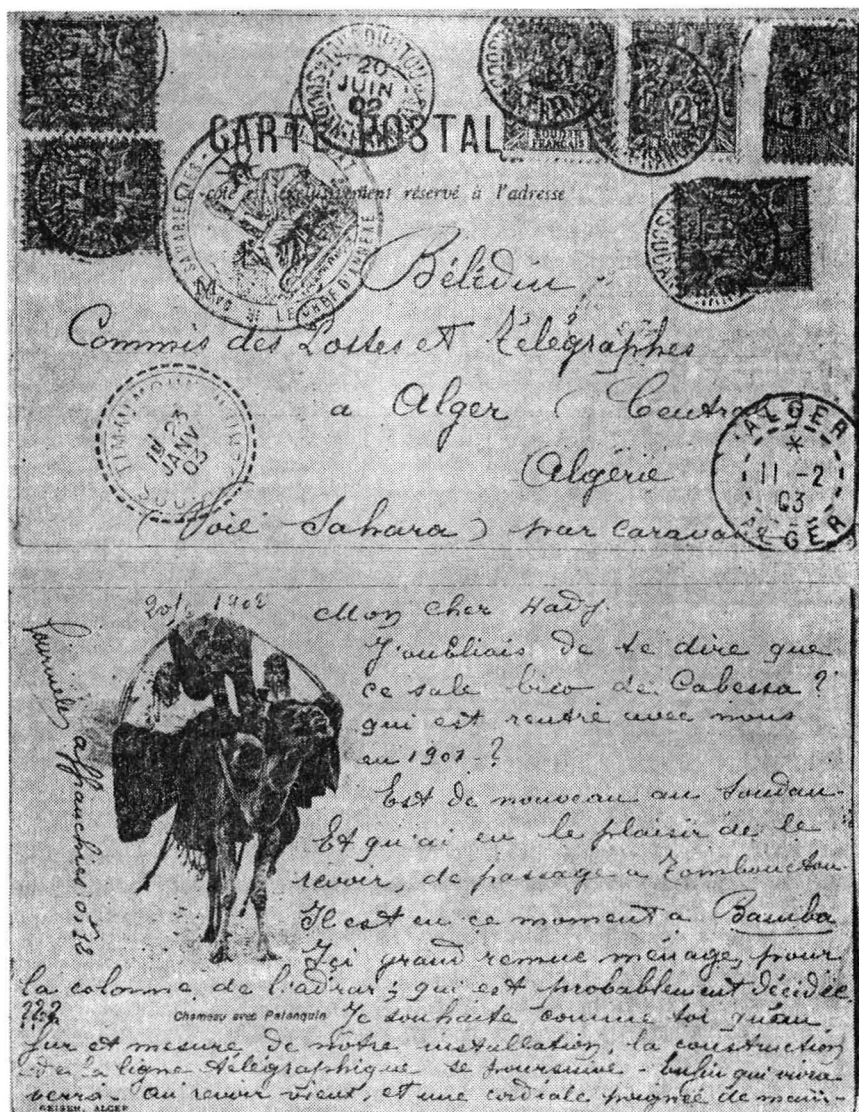 20 JUIN 02
SOUDAN FRANÇAIS
CARTE POSTAL
réservé à l'adresse
LE CHEF D'ANNEXE
Bélédin
Commis des Postes et Télégraphes
a Alger (Central
Algérie
(Voie Sahara) par caravane
23 JANV 03
ALGER
11 -2
03
ALGER
1902
Mon cher Hady.
J'oubliais de te dire que
ce sale bico de Cabessa?
qui est rentré avec nous
en 1901-?
Est de nouveau au Soudan.
Et qu'ai eu le plaisir de le
revoir, de passage a Tombouctou
Il est en ce moment a Bamba
Ici grand remue ménage, pour
la colonne de l'adrar; qui est probablement décidée
???
Chameau avec Palanquin
Je souhaite comme toi qu'au
fur et mesure de notre installation, la construction
de la ligne télégraphique se poursuive - Enfin qui vivra
verra. Au revoir vieux, et une cordiale poignée de main-
GEISER, ALGER
affranchies